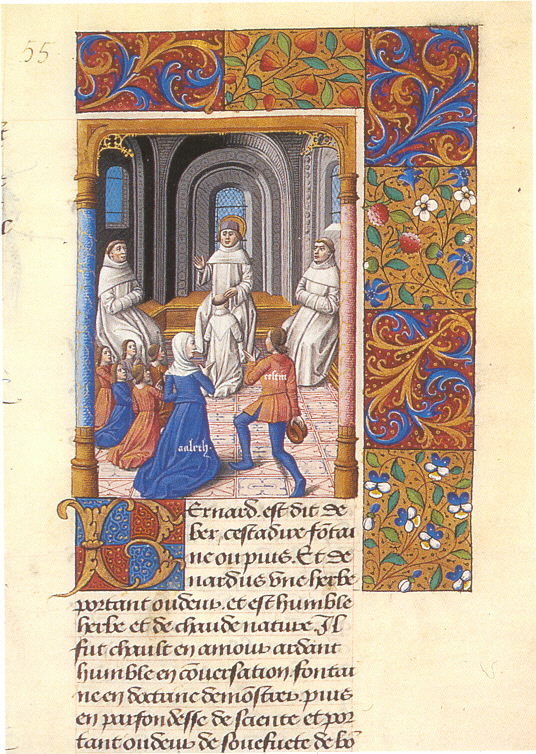 55
tesem
aalech.
Bernard. est dit de
ber. cestadire fontai
ne ou puis. Et de
nardus une herbe
portant oudeur. et est humble
herbe et de chaude nature. Il
fut chault en amour ardant
humble en cõversation. fontai
ne en doctrine demõstrer. puis
en parfondesse de science et por
tant oudeur de souefuete de bõ